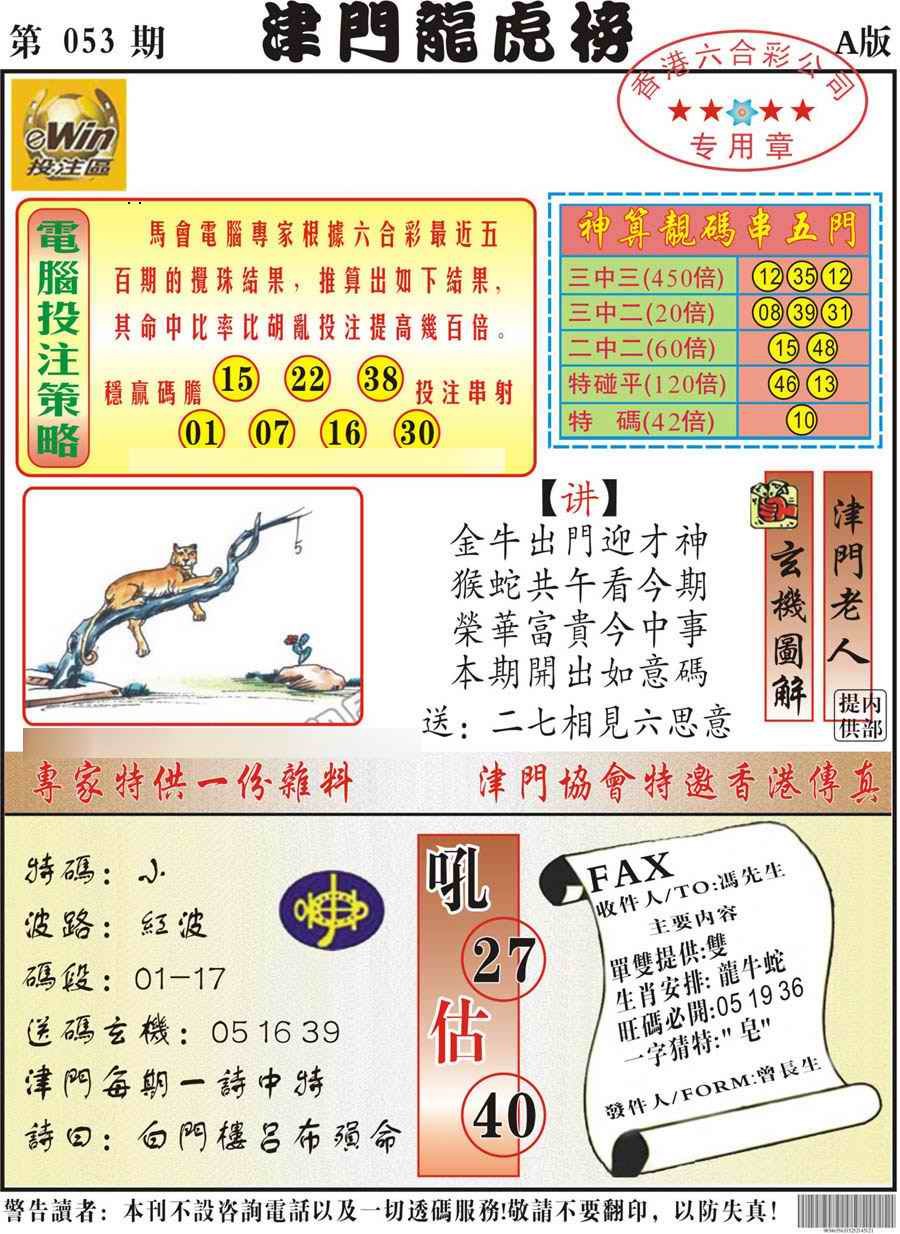 第 053 期
津門龍虎榜
A版
香港六合彩公司
专用章
eWin
投注區
電腦投注策略
馬會電腦專家根據六合彩最近五
百期的攪珠結果，推算出如下結果，
其命中比率比胡亂投注提高幾百倍。
穩贏碼膽 15 22 38 投注串射
01 07 16 30
神算靚碼串五門
三中三(450倍) 12 35 12
三中二(20倍) 08 39 31
二中二(60倍) 15 48
特碰平(120倍) 46 13
特 碼(42倍) 10
5
【讲】
金牛出門迎才神
猴蛇共午看今期
榮華富貴今中事
本期開出如意碼
送：二七相見六思意
玄機圖解
津門老人
內部提供
專家特供一份雜料
津門協會特邀香港傳真
特碼：小
波路：紅波
碼段：01-17
送碼玄機：05 16 39
津門每期一詩中特
詩曰：白門樓呂布殞命
吼
27
估
40
FAX
收件人/TO:馮先生
主要內容
單雙提供:雙
生肖安排:龍牛蛇
旺碼必開:05 19 36
一字猜特:"皂"
發件人/FORM:曾長生
警告讀者：本刊不設咨詢電話以及一切透碼服務!敬請不要翻印，以防失真！